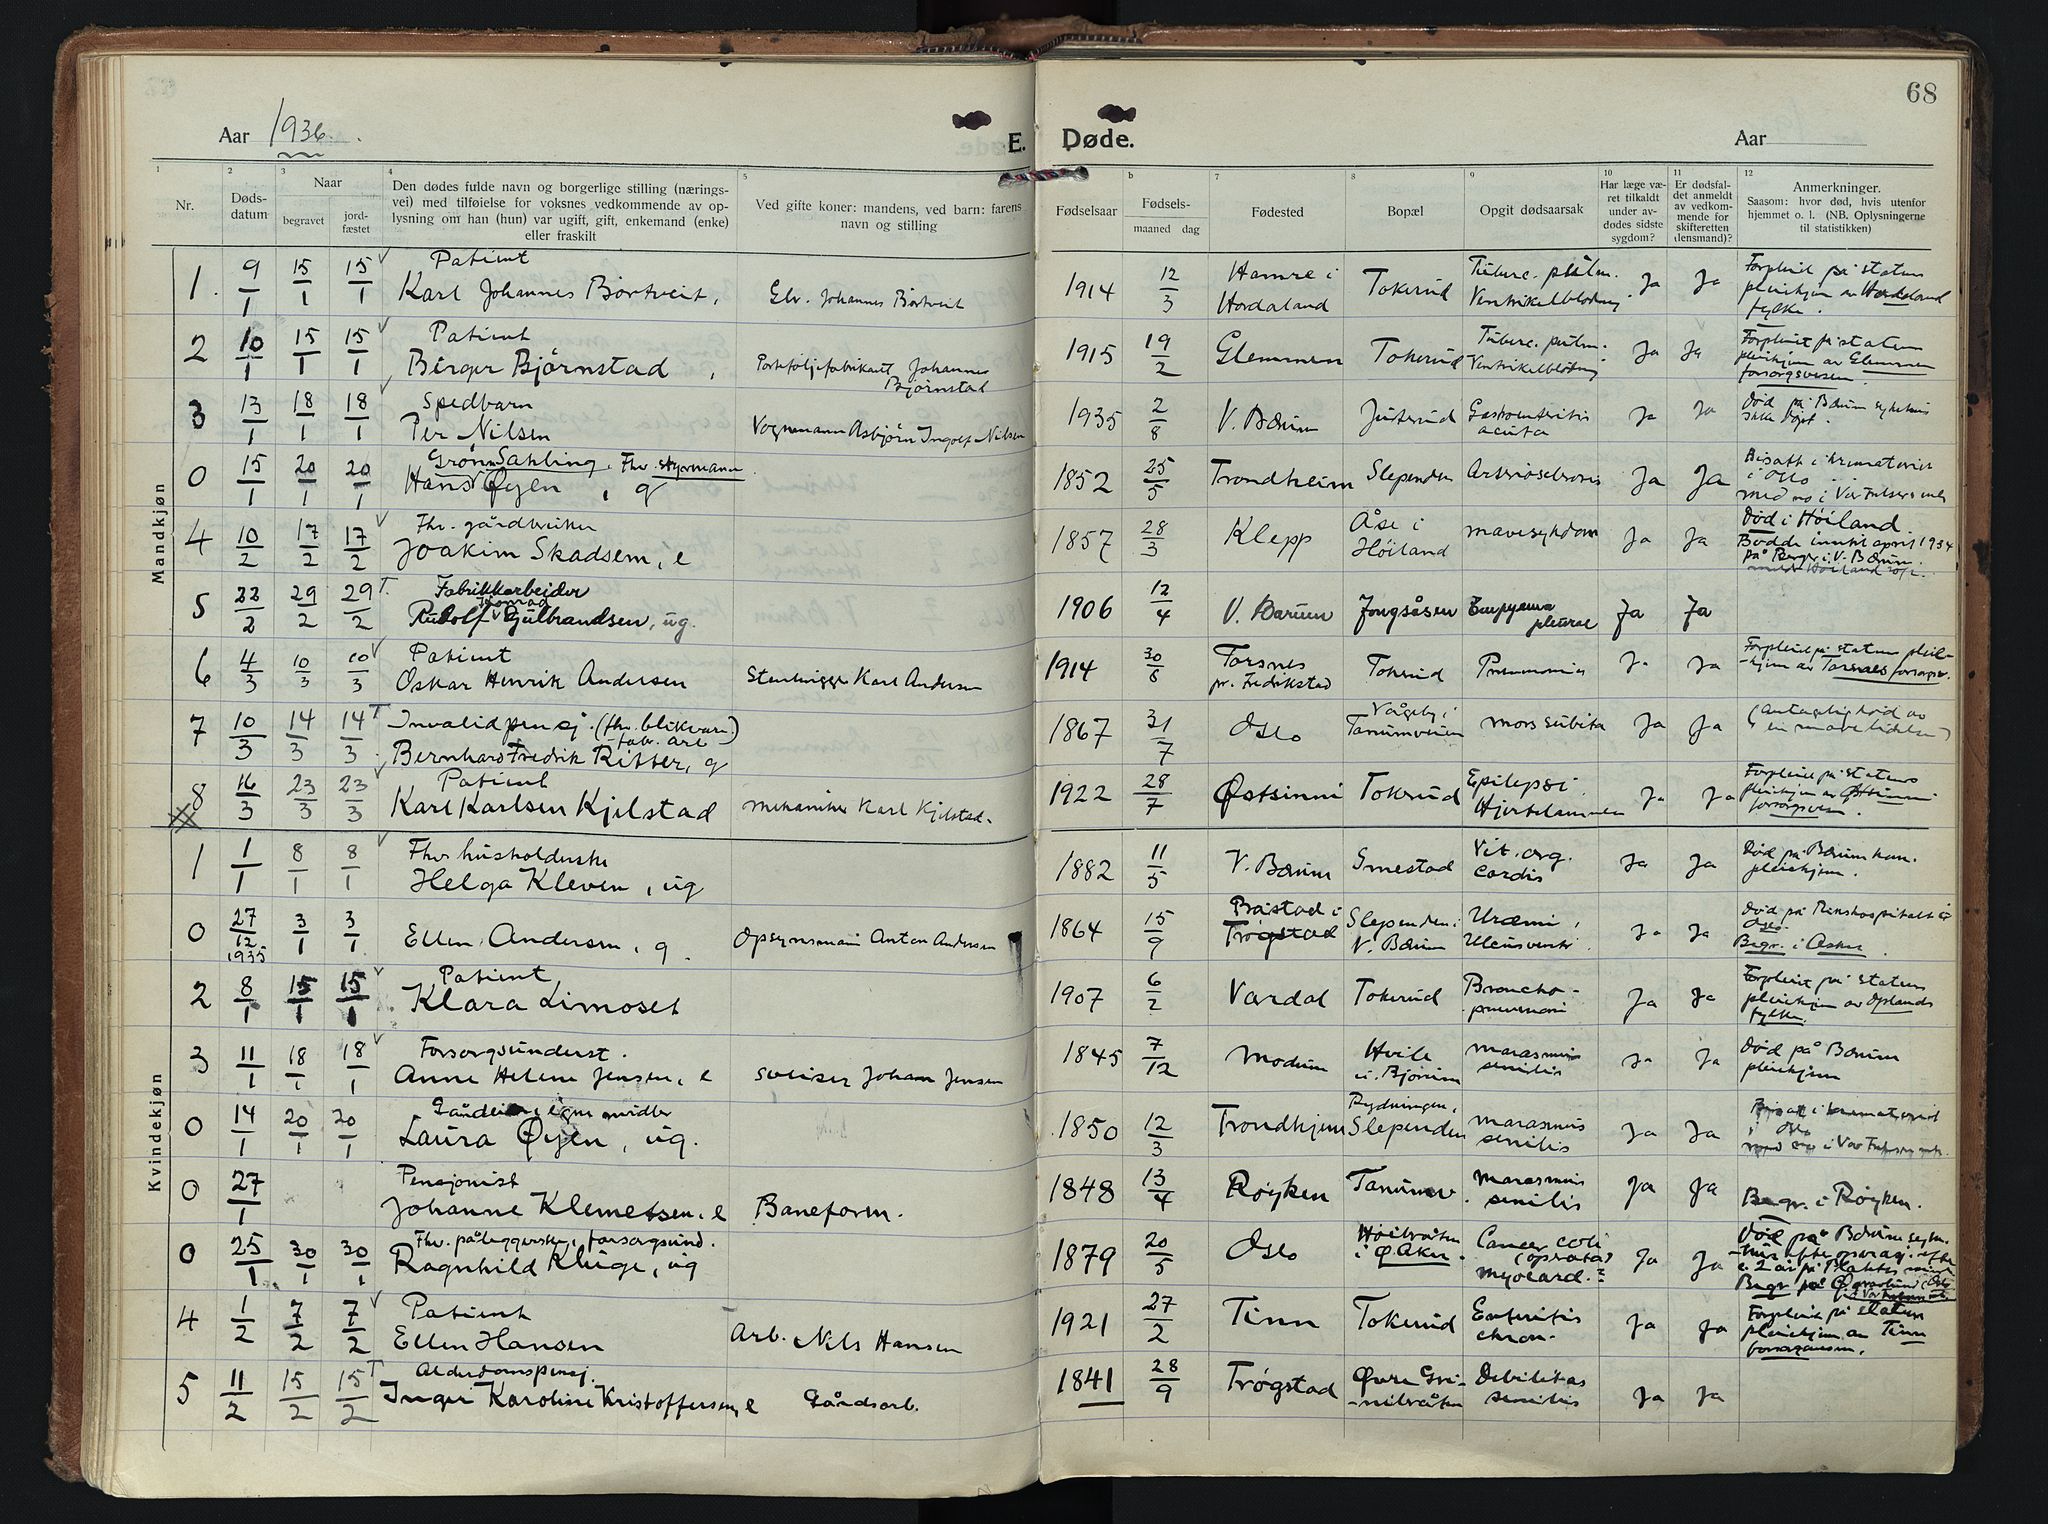 68
Aar 1936. E. Døde. Aar
1 2 3 4 5 b 7 8 9 10 11 12
Nr. Dødsdatum Naar begravet jordfæstet Den dødes fulde navn og borgerlige stilling (næringsvei) med tilføielse for voksnes vedkommende av oplysning om han (hun) var ugift, gift, enkemand (enke) eller fraskilt Ved gifte koner: mandens, ved barn: farens navn og stilling Fødselsaar Fødselsmaaned dag Fødested Bopæl Opgit dødsaarsak Har læge været tilkaldt under avdødes sidste sygdom? Er dødsfaldet anmeldt av vedkommende for skifteretten (lensmand)? Anmerkninger. Saasom: hvor død, hvis utenfor hjemmet o. l. (NB. Oplysningerne til statistikken)
Mandkjøn
1. 9/1 15/1 15/1 Patient Karl Johannes Børtveit, Johannes Børtveit 1914 12/3 Hamre i Hordaland Tokerud Tuberc. pulm. Ventrikelblødning. Ja Ja Forpleiet på statens pleiehjem av Hordaland fylke.
2 10/1 15/1 15/1 Patient Birger Bjørnstad, Porteføljefabrikant Johannes Bjørnstad 1915 19/2 Glemmen Tokerud Tuberc. pulm. Ventrikelblødning Ja Ja Forpleiet på statens pleiehjem av Glemmen forsorgsvesen.
3 13/1 18/1 18/1 Spedbarn Per Nilsen Vognmann Asbjørn Ingolf Nilsen 1935 2/8 V. Bærum Juterud Gastroenteritis acuta Ja Ja Død på Bærum sykehus ikke døpt.
0 15/1 20/1 20/1 Grønn Sahling. Fhv. styrmann Hans Øyen, g 1852 25/5 Trondheim Slependen Arteriosclerosis Ja Ja Bisatt i krematoriet i Oslo
4 10/2 17/2 17/2 Fhv. gårdbruker Joakim Skadsem, e 1857 28/3 Klepp Åse i Høiland mavesykdom Ja Ja Død i Høiland. Bodde inntil april 1934 på Berger i V. Bærum.
5 22/2 29/2 29/2 Fabrikkarbeider Rudolf Konrad Gulbrandsen, ug. 1906 12/4 V. Bærum Jongsåsen Empyema pleurae Ja Ja
6 4/3 10/3 10/3 Patient Oskar Henrik Andersen Stenhugger Karl Andersen 1914 30/6 Torsnes pr. Fredrikstad Tokerud Pneumonia Ja Ja Forpleiet på statens pleiehjem av Torsnes forsorgsv.
7 10/3 14/3 14/3 Invalidpensj. (fhv. blikvarefab. arb.) Bernhard Fredrik Ritter, g 1867 31/7 Oslo Tanumveien mors subita Ja Ja (Antagelig død av en mavelidelse)
8 16/3 23/3 23/3 Patient Karl Karlsen Kjelstad mekaniker Karl Kjelstad. 1922 28/7 Østsinni Tokerud Epilepsi. Hjertelammelse Ja Ja Forpleiet på statens pleiehjem av Østsinni forsorgsvesen.
Kvindekjøn
1 1/1 8/1 8/1 Fhv. husholderske Helga Kleven, ug 1882 11/5 V. Bærum Smestad Vit. org. cordis Ja Ja Død på Bærum kom. pleiehjem.
0 27/12 1935 3/1 3/1 Ellen Andersen, g. Opsynsmann Anton Andersen 1864 15/9 Båstad i Trøgstad Slependen i V. Bærum Uræmi, Ulcus ventr. Ja Ja Død på Rikshospitalet i Oslo Begr. i Asker
2 8/1 15/1 15/1 Patient Klara Limoset 1907 6/2 Vardal Tokerud Bronchopneumoni Ja Ja Forpleiet på statens pleiehjem av Oplands fylke.
3 11/1 18/1 18/1 Forsorgsunderst. Anne Helene Jensen, e sveiser Johan Jensen 1845 7/12 Modum Hvile u. Bjørum marasmus senilis Ja Ja Død på Bærum pleiehjem
0 14/1 20/1 20/1 egne midler Laura Øyen, ug. 1850 12/3 Trondhjem Rydningen, Slependen marasmus senilis Ja Ja Bisatt i krematoriet i Oslo
0 27/1 Pensjonist Johanne Klemetsen, e Baneform. 1848 13/4 Røyken Tanumv. marasmus senilis Ja Ja Begr. i Røyken.
0 25/1 30/1 30/1 Fhv. påleggerske, forsorgsund. Ragnhild Kluge, ug 1879 20/5 Oslo Høibråten i Ø. Aker. Cancer coli (operata) myocard. Ja Ja Død på Bærum sykehus efter operasj.
4 1/2 7/2 7/2 Patient Ellen Hansen Arb. Nils Hansen 1921 27/2 Tinn Tokerud Enteritis chron. Ja Ja Forpleiet på statens pleiehjem av Tinn
5 11/2 15/2 15/2 Alderdomspensj. Inger Karoline Kristoffersen, e Gårdsarb. 1841 28/9 Trøgstad Øvre Grinibråten Debilitas senilis Ja Ja